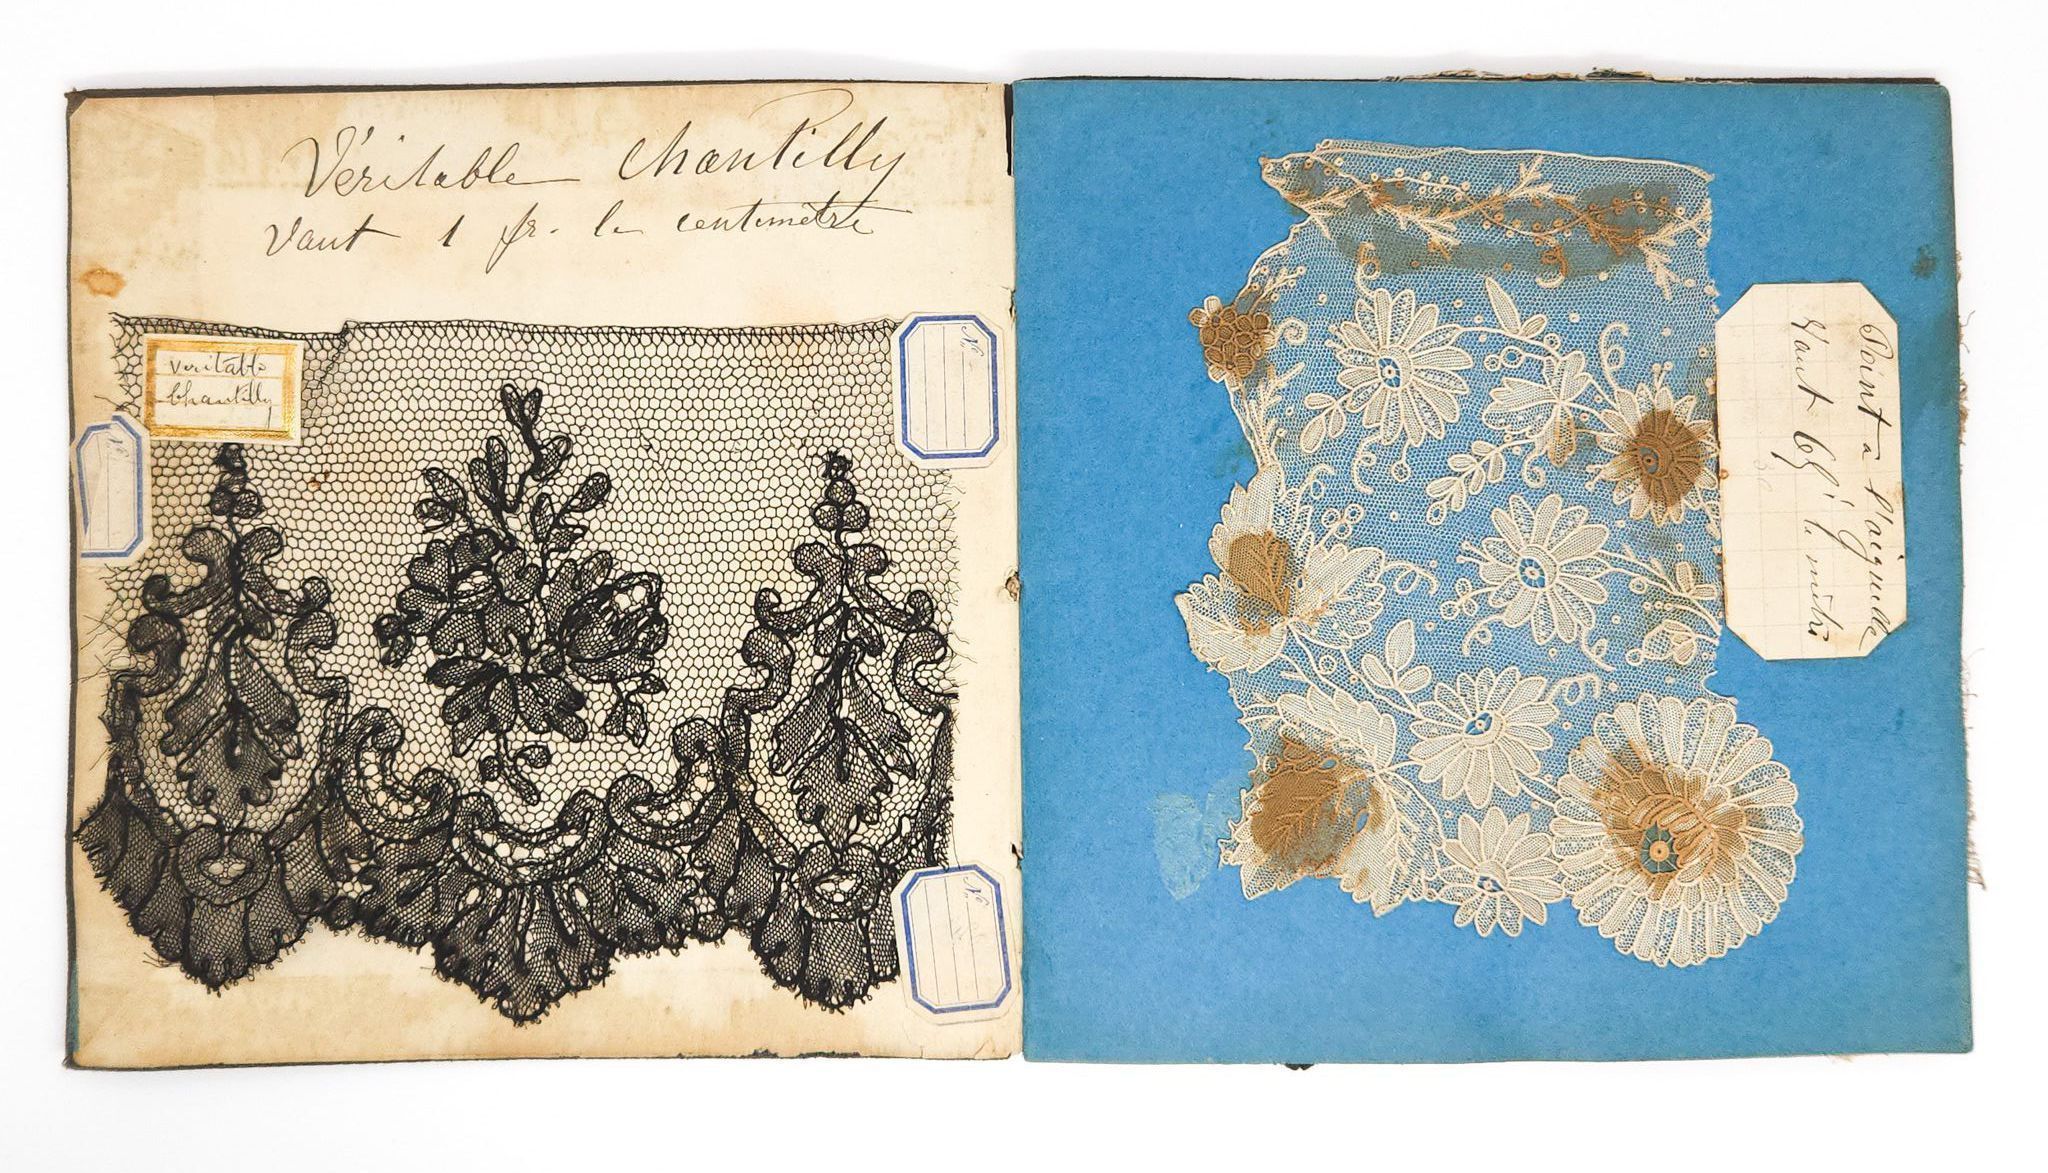 Véritable Chantilly
Vaut 1 fr. le centimètre
veritable
Chantilly
No
No
No
Point à l'aiguille
Vaut 65f le mètre